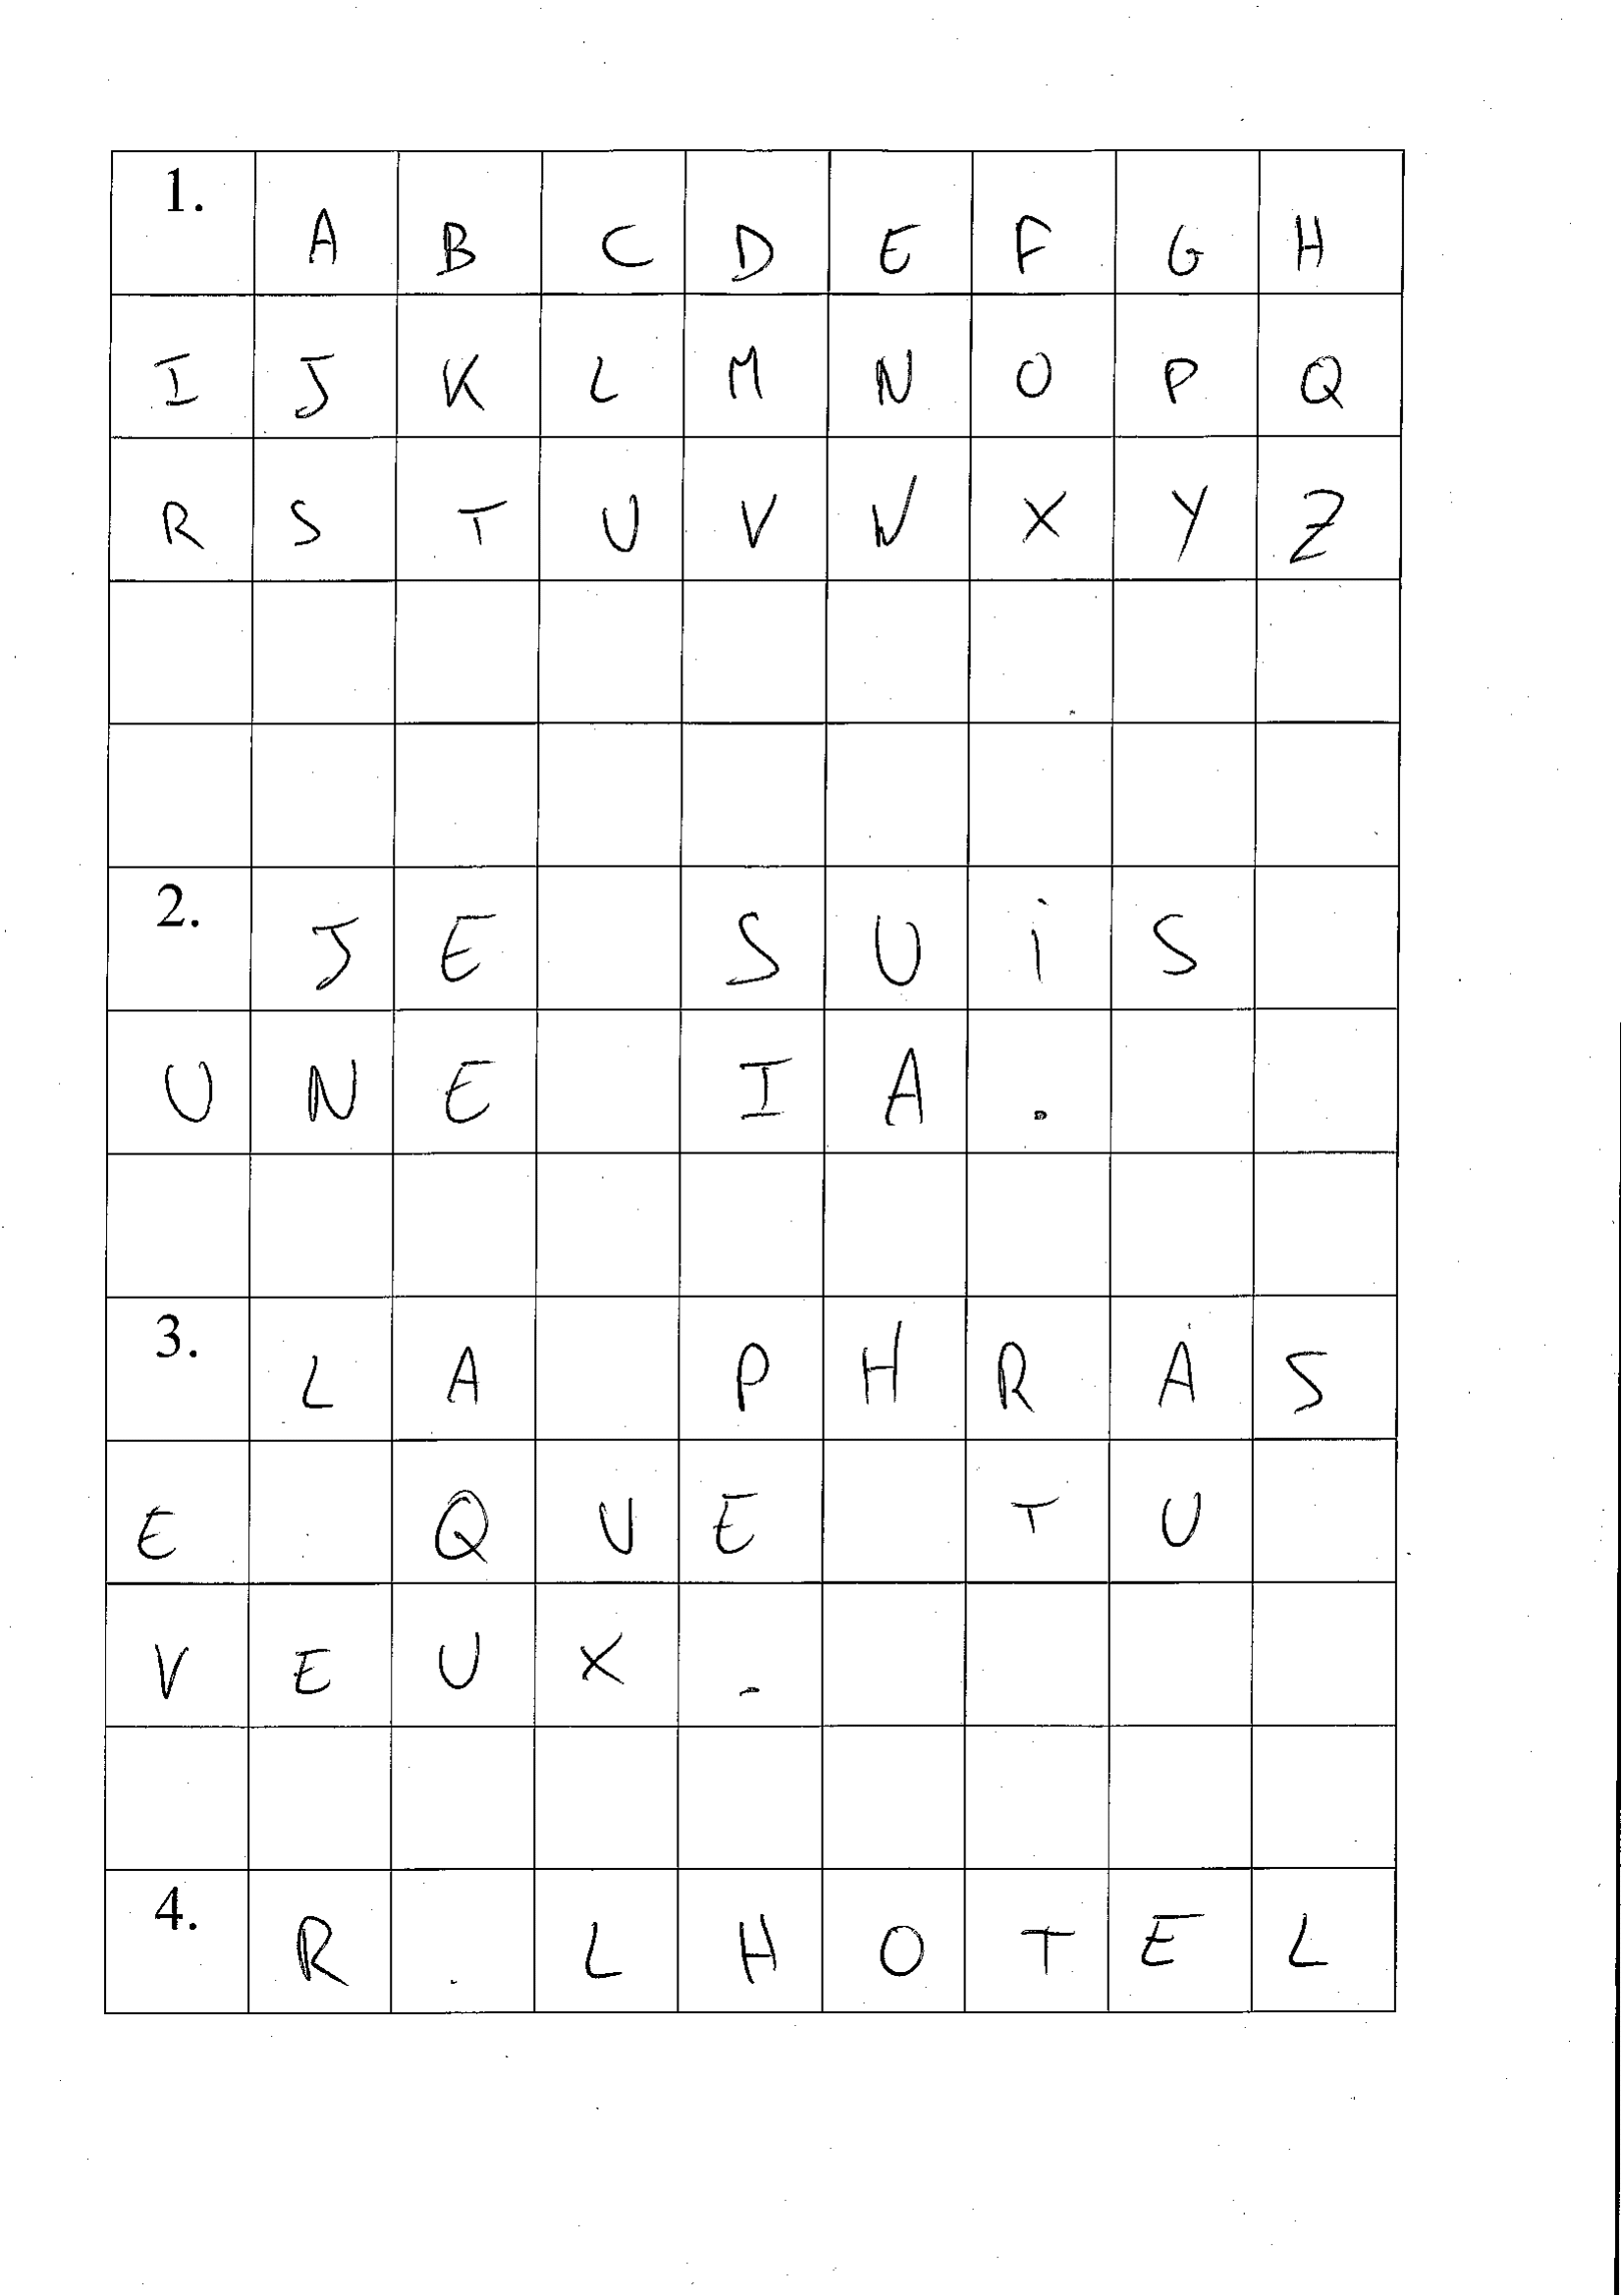 1. A B C D E F G H
I J K L M N O P Q
R S T U V W X Y Z
2. J E   S U i S
U N E   I A .
3. L A   P H R A S
E   Q U E   T U
V E U X .
4. R . L H O T E L